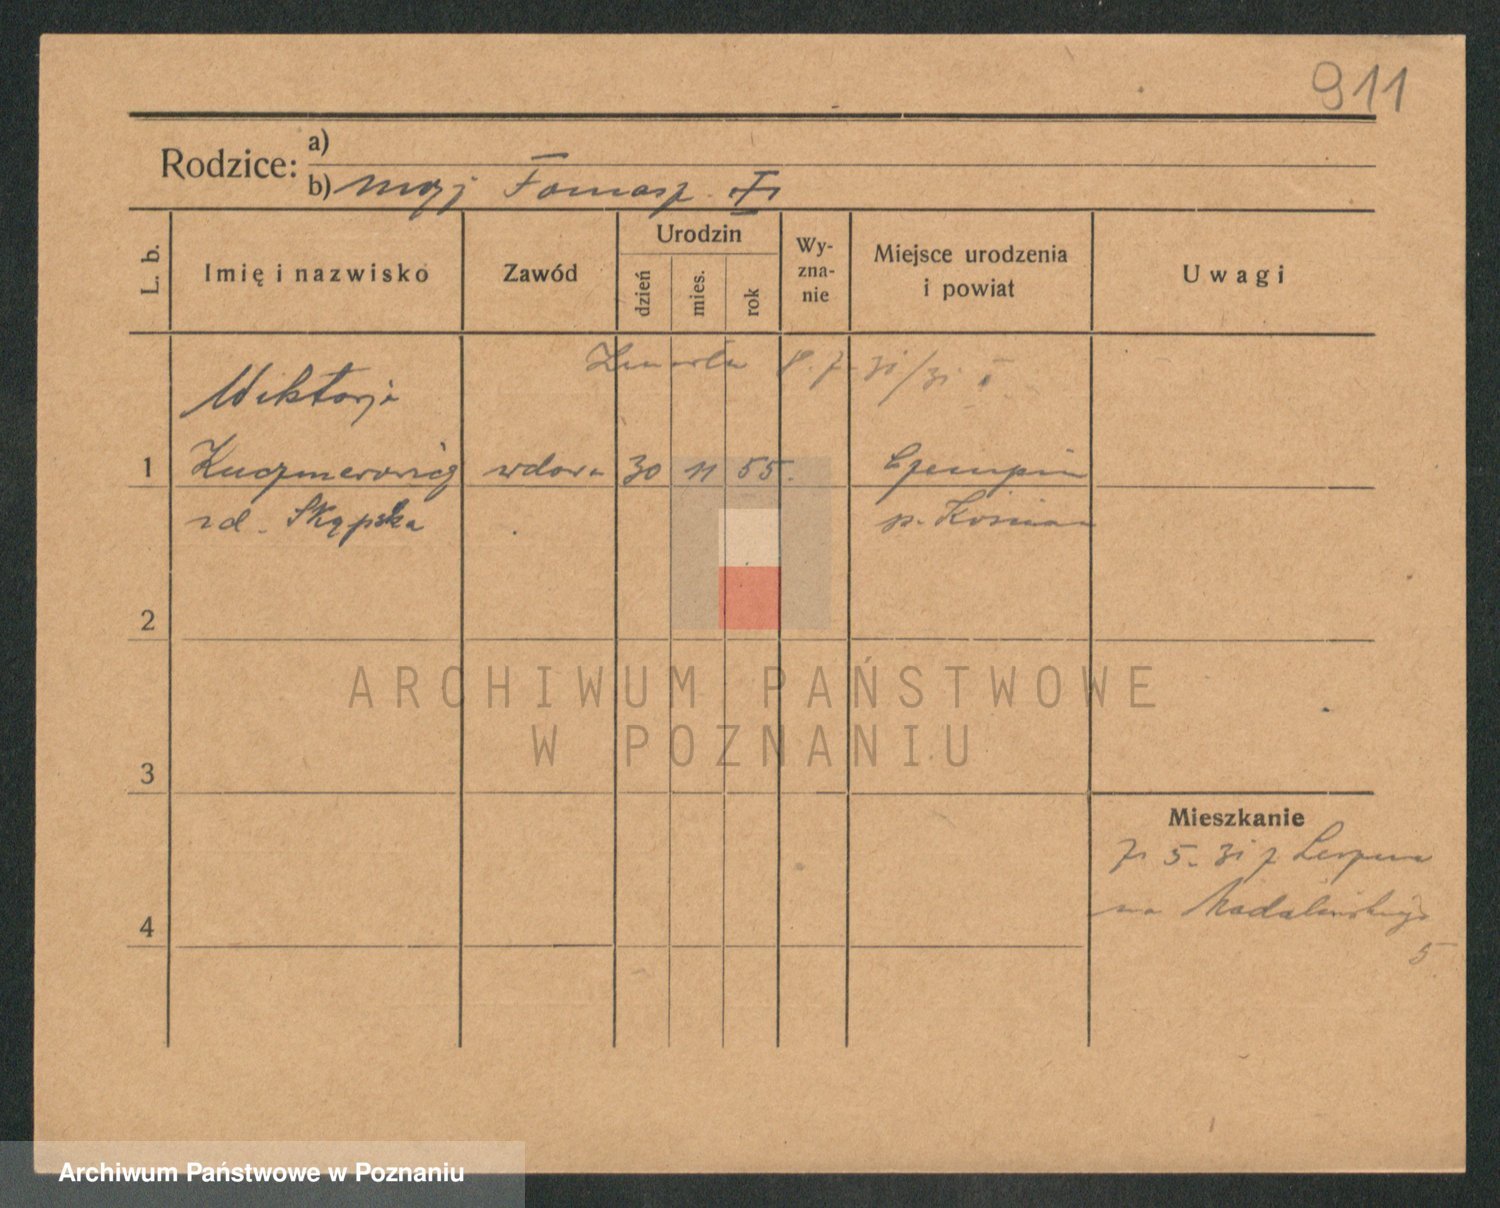 911
Rodzice:
a)
b) mąż Tomasz †
L. b.
Imię i nazwisko
Zawód
Urodzin
dzień
mies.
rok
Wy-
zna-
nie
Miejsce urodzenia
i powiat
Uwagi
Zmarła 8. 7. 31/31
Wiktorja
1 Kuczmerowicz wdowa 30 11 55. Czempin
zd. Skąpska p. Kościan
2
ARCHIWUM PAŃSTWOWE
W POZNANIU
3
Mieszkanie
5. 31 z Leszna
na Madalińskiego
4
5
Archiwum Państwowe w Poznaniu